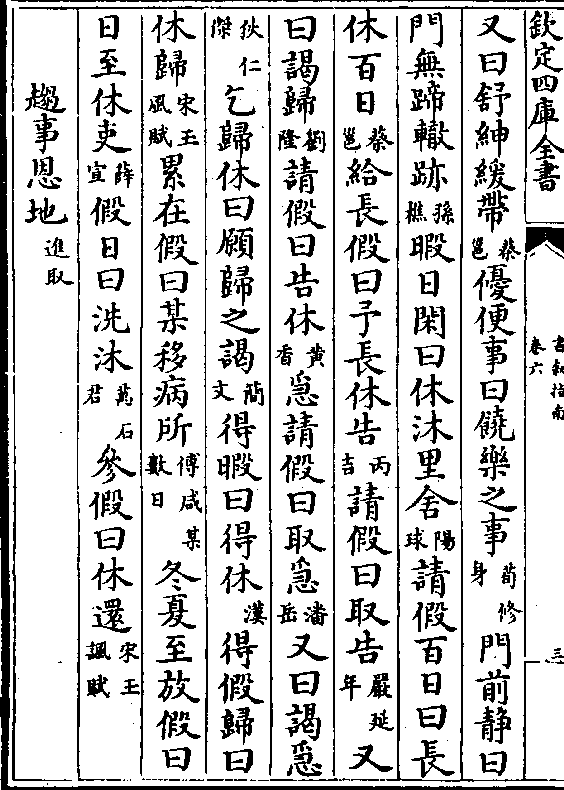 欽定四庫全書
書叙指南
卷六
三
又曰舒紳緩帶蔡邕優便事曰饒樂之事荀修身門前靜曰
門無蹄轍跡孫樵暇日閑曰休沐里舍陽球請假百日曰長
休百日蔡邕給長假曰予長休告丙吉請假曰取告嚴延年又
曰謁歸劉隆請假曰告休黃香急請假曰取急潘岳又曰謁急
狄仁傑乞歸休曰願歸之謁簡文得暇曰得休漢得假歸曰
休歸宋玉風賦累在假曰某移病所傅咸某數日冬夏至放假曰
日至休吏薛宣假日曰洗沐萬石君參假曰休還宋玉諷賦
趨事恩地進取